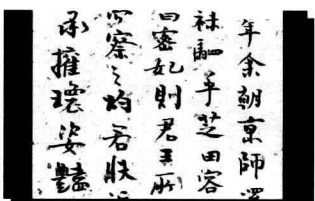 年余朝京師還
秣駟乎芝田容
曰宓妃則君王所
察之均若狀
承權瓌姿豔